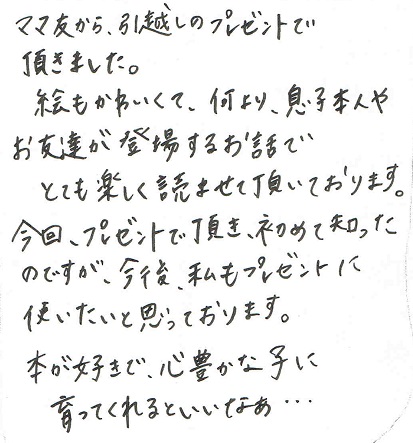 ママ友から、引越しのプレゼントで
頂きました。
絵もかわいくて、何より、息子本人や
お友達が登場するお話で
とても楽しく読ませて頂いております。
今回、プレゼントで頂き、初めて知った
のですが、今後、私もプレゼントに
使いたいと思っております。
本が好きで、心豊かな子に
育ってくれるといいなぁ…